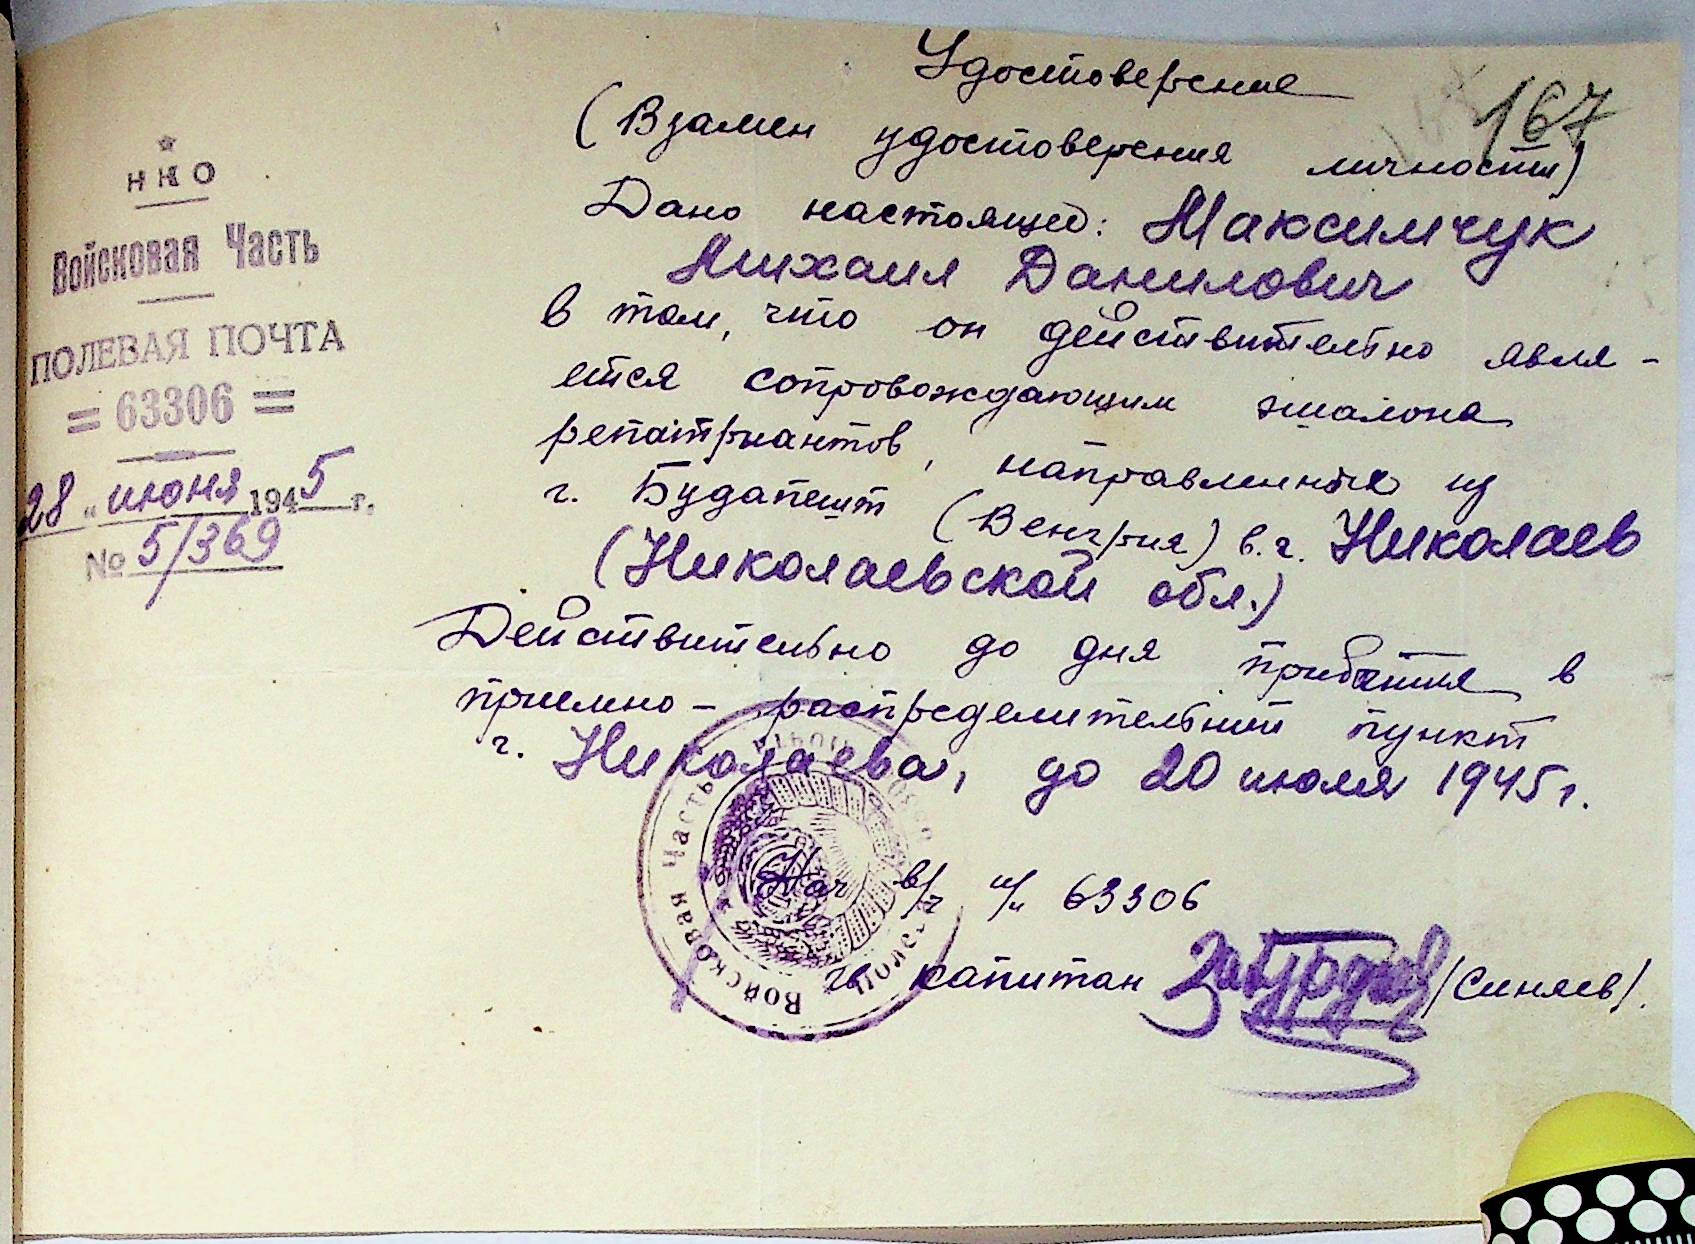 ★
НКО
Войсковая Часть
ПОЛЕВАЯ ПОЧТА
= 63306 =
28 „ июня 1945 г.
№ 5/369
167
Удостоверение
(Взамен удостоверения личности)
Дано настоящее: Максимчук
Михаил Данилович
в том, что он действительно явля-
ется сопровождающим эшалона
репатриантов, направленных из
г. Будапешт (Венгрия) в г. Николаев
(Николаевской обл.)
Действительно до дня прибытия в
приемно-распределительный пункт
г. Николаева, до 20 июля 1945 г.
Нач в/ч п/п 63306
гв капитан /Синяев/.
Войсковая Часть Полевая Почта